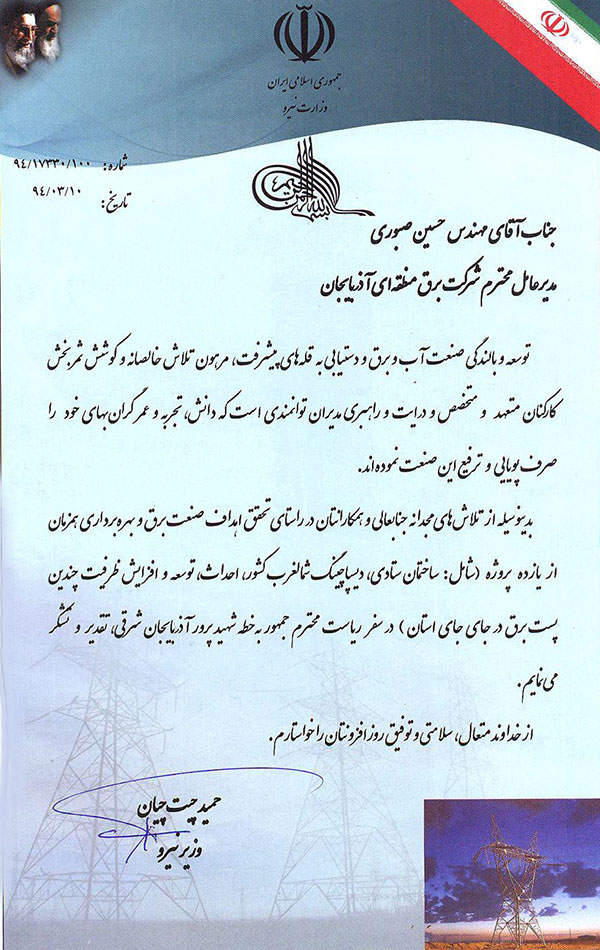 جمهوری اسلامی ایران
وزارت نیرو
شماره: ۹٤/۱۷۳۳۰/۱۰۰
تاریخ: ۹٤/۰۳/۱۰
بسم الله الرحمن الرحیم
جناب آقای مهندس حسین صبوری
مدیرعامل محترم شرکت برق منطقه ای آذربایجان
توسعه و بالندگی صنعت آب و برق و دستیابی به قله های پیشرفت، مرهون تلاش خالصانه و کوشش ثمربخش
کارکنان متعهد و متخصص و درایت و راهبری مدیران توانمندی است که دانش، تجربه و عمر گران بهای خود را
صرف پویایی و ترفیع این صنعت نموده اند.
بدینوسیله از تلاش های مجدانه جنابعالی و همکارانتان در راستای تحقق اهداف صنعت برق و بهره برداری همزمان
از یازده پروژه (شامل: ساختمان ستادی، دیسپاچینگ شمالغرب کشور، احداث، توسعه و افزایش ظرفیت چندین
پست برق در جای جای استان) در سفر ریاست محترم جمهور به خطه شهید پرور آذربایجان شرقی، تقدیر و تشکر
می نمایم.
از خداوند متعال، سلامتی و توفیق روز افزونتان را خواستارم.
حمید چیت چیان
وزیر نیرو